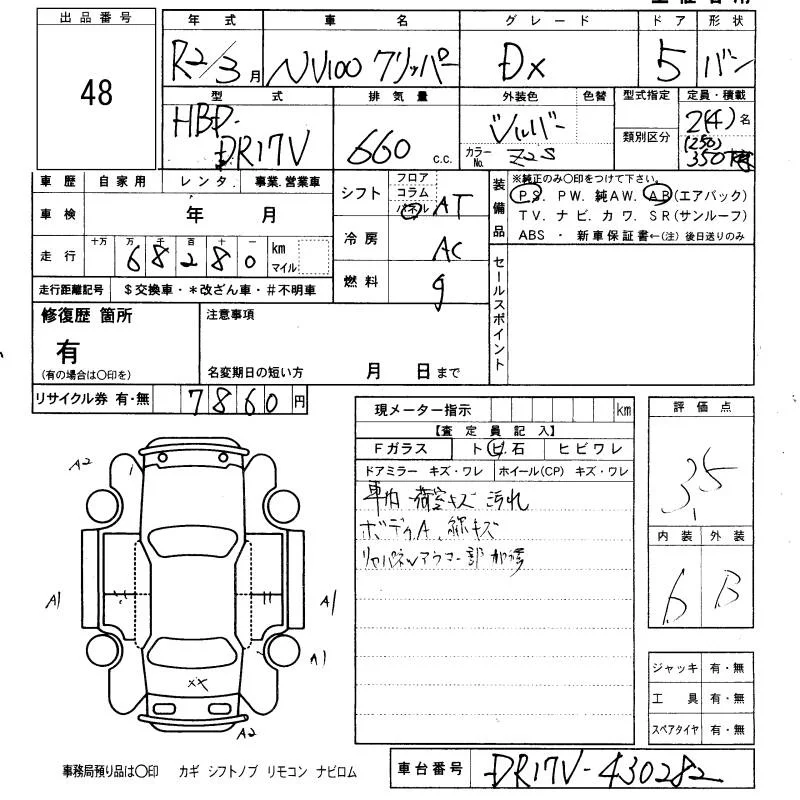 出品番号
48
年式 車名 グレード ドア 形状
R2/3月 NV100 クリッパー DX 5 バン
型式 排気量 外装色 色替 型式指定 定員・積載
HBD-DR17V 660 c.c. シルバー
カラーNo. Z2S 類別区分 2(4)名
(250)
350
車歴 自家用 レンタ. 事業.営業車
車検 年 月
走行 十万 万 千 百 十 一 km マイル
6 8 2 8 0
走行距離記号 $交換車・*改ざん車・#不明車
シフト フロア コラム パネル AT
冷房 AC
燃料 g
装備品
※純正のみ〇印をつけて下さい。
PS. PW. 純AW. AB(エアバック)
TV. ナビ. カワ. SR(サンルーフ)
ABS ・ 新車保証書←(注)後日送りのみ
セールスポイント
修復歴 箇所
有
(有の場合は〇印を)
注意事項
名変期日の短い方 月 日まで
リサイクル券 有・無 7860円
現メーター指示 km
【査定員記入】
Fガラス トビ石 ヒビワレ
ドアミラー キズ・ワレ ホイール(CP) キズ・ワレ
車内 荷室キズ 汚れ
ボディA、線キズ
リヤパネル
評価点
3.5
内装 外装
b B
ジャッキ 有・無
工具 有・無
スペアタイヤ 有・無
A2
A1
A1
A1
XX
A2
事務局預り品は〇印 カギ シフトノブ リモコン ナビロム
車台番号 DR17V-430282